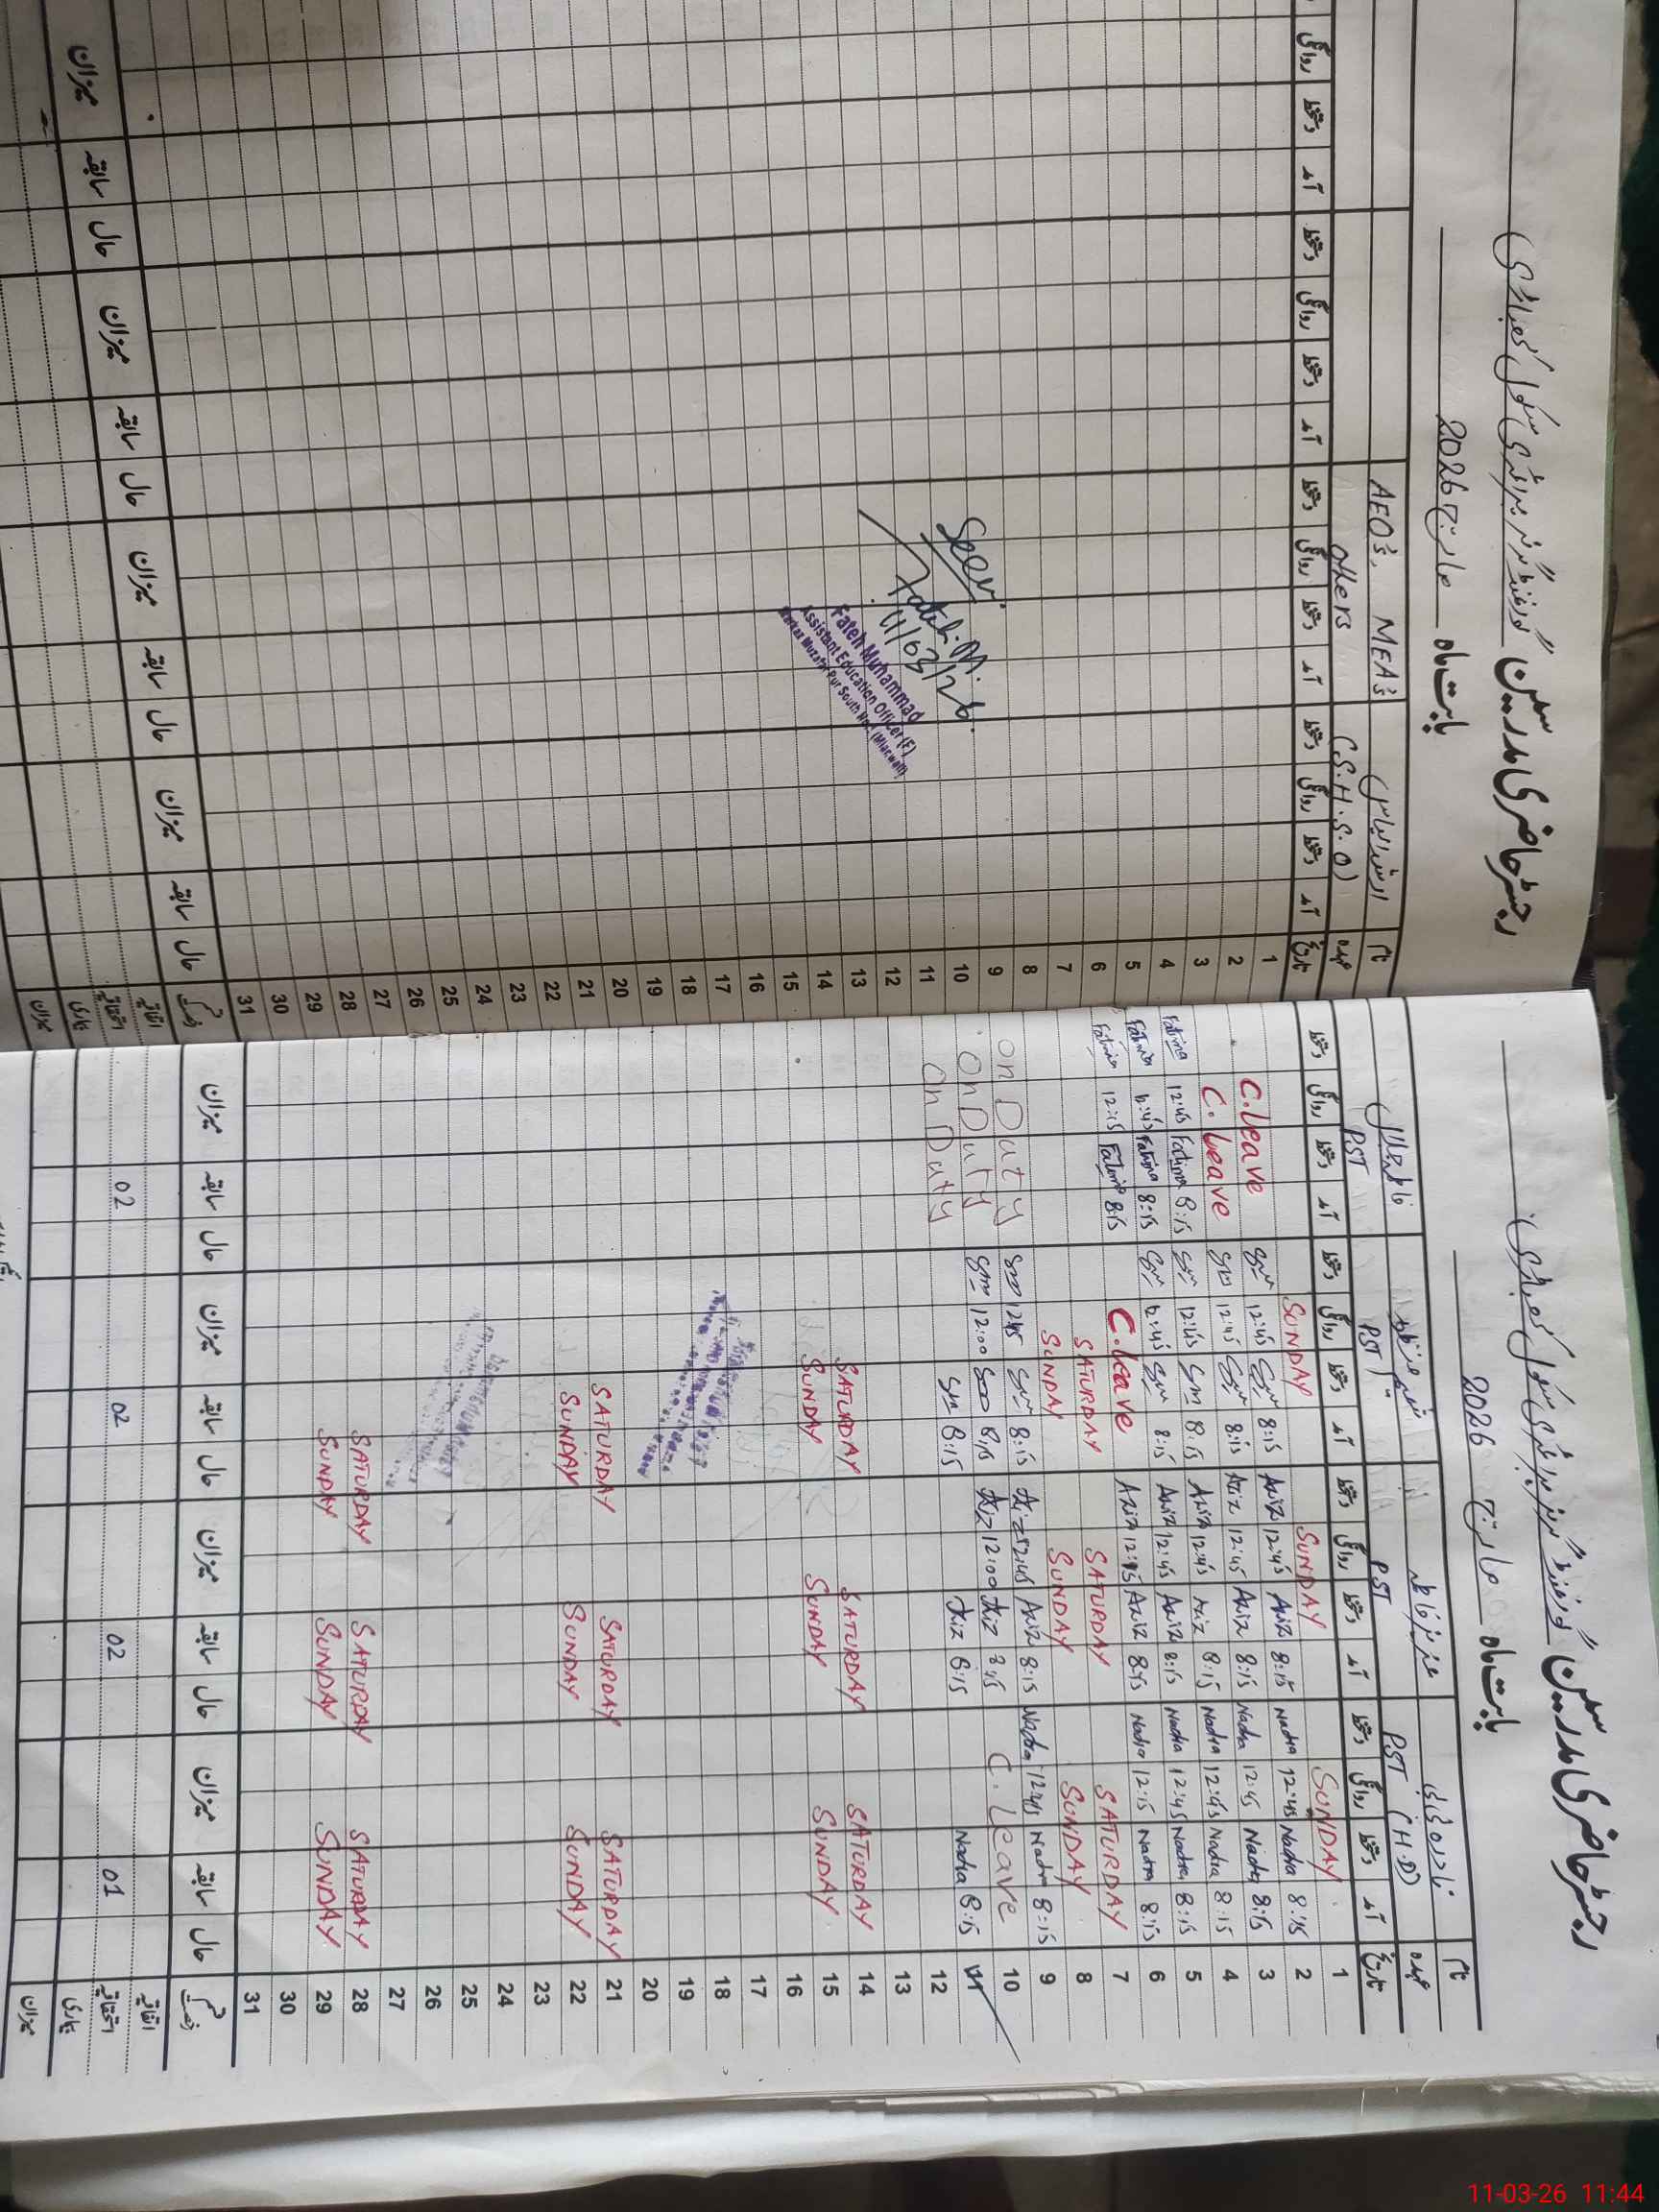 رجسٹر حاضری مدرسین گورنمنٹ گرلز پرائمری سکول
بابت ماہ مارچ 2026
نام
AEO's, MEA's
عہدہ
(S.H.S.O)
others
تاریخ آمد دستخط روانگی دستخط آمد دستخط روانگی دستخط آمد دستخط روانگی دستخط آمد دستخط روانگی
1
2
3
4
5
6
7
8
9
10
11
12
13
14
15
16
17
18
19
20
21
22
23
24
25
26
27
28
29
30
31
Seen
Fateh.M.
11/03/26
Fateh Muhammad
Assistant Education Officer (F)
Markaz Muzafar Pur South
قسم رخصت حال سابقہ میزان حال سابقہ میزان حال سابقہ میزان حال سابقہ میزان
اتفاقیہ
استحقاقیہ
بیماری
میزان
رجسٹر حاضری مدرسین گورنمنٹ گرلز پرائمری سکول
بابت ماہ مارچ 2026
نام
عہدہ PST (H.D) PST PST PST
تاریخ آمد دستخط روانگی دستخط آمد دستخط روانگی دستخط آمد دستخط روانگی دستخط آمد دستخط روانگی دستخط
1 SUNDAY SUNDAY SUNDAY
2 8:15 Nadra 12:45 Nadra 8:15 Aziz 12:45 Aziz 8:15 12:45 C.leave
3 8:15 Nadra 12:45 Nadra 8:15 Aziz 12:45 Aziz 8:15 12:45 C.leave
4 8:15 Nadra 12:45 Nadra 8:15 Aziz 12:45 Aziz 8:15 12:45 8:15 Fatima 12:45 Fatima
5 8:15 Nadra 12:45 Nadra 8:15 Aziz 12:45 Aziz 8:15 12:45 8:15 Fatima 12:45 Fatima
6 8:15 Nadra 12:15 Nadra 8:15 Aziz 12:15 Aziz C.leave 8:15 Fatima 12:15 Fatima
7 SATURDAY SATURDAY SATURDAY
8 SUNDAY SUNDAY SUNDAY
9 8:15 Nadra 12:45 Nadra 8:15 Aziz 12:45 Aziz 8:15 12:45 on Duty
10 C. Leave 8:15 Aziz 12:00 Aziz 8:15 12:00 on Duty
11 8:15 Nadra 8:15 Aziz 8:15 on Duty
12
13
14 SATURDAY SATURDAY SATURDAY
15 SUNDAY SUNDAY SUNDAY
16
17
18
19
20
21 SATURDAY SATURDAY SATURDAY
22 SUNDAY SUNDAY SUNDAY
23
24
25
26
27
28 SATURDAY SATURDAY SATURDAY
29 SUNDAY SUNDAY SUNDAY
30
31
قسم رخصت حال سابقہ میزان حال سابقہ میزان حال سابقہ میزان حال سابقہ میزان
اتفاقیہ
استحقاقیہ 01 02 02 02
بیماری
میزان
11-03-26 11:44